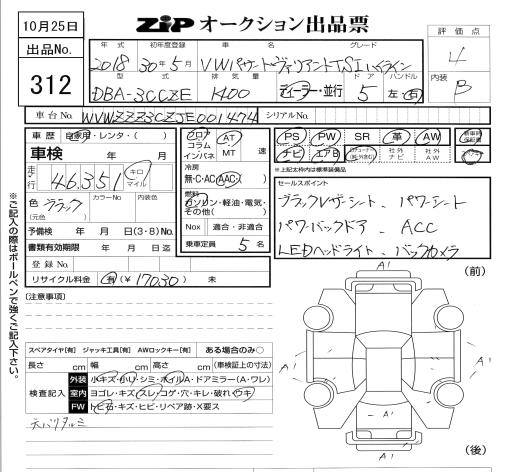 10月25日
ZIP オークション出品票
評価点
4
出品No.
312
年式 初年度登録 車名 グレード
2018 30年5月 VWパサートヴァリアントTSIハイライン
内装
B
型式 排気量 ドア ハンドル
DBA-3CCZE 1400 ディーラー・並行 5 左・右
車台No. WVWZZZ3CZJE001474 シリアルNo.
車歴 自家用・レンタ・( )
車検 年 月
走行 46,351 キロ マイル
色 ブラック カラーNo. 内装色
(元色)
予備検 年 月 日(3・8)No.
書類有効期限 年 月 日迄
登録No.
リサイクル料金 有(¥17030) 未
フロア コラム インパネ AT MT 速
冷房
無・C・AC(AAC)
燃料
ガソリン・軽油・電気・その他( )
Nox 適合・非適合
乗車定員 5 名
PS PW SR 革 AW 新車時保証書
ナビ エアB 社外ナビ 社外AW
※上記太枠内は標準装備品
セールスポイント
ブラックレザーシート、パワーシート
パワーバックドア、ACC
LEDヘッドライト、バックカメラ
※ご記入の際はボールペンで強くご記入下さい。
(注意事項)
スペアタイヤ[有] ジャッキ工具[有] AWロックキー[有] ある場合のみ○
長さ cm 幅 cm 高さ cm (車検証上の寸法)
検査記入
外装 小キズ・小U・シミ・ホイルA・ドアミラー(A・ワレ)
室内 ヨゴレ・キズ・スレ・コゲ・穴・キレ・破れ・ウキ
FW トビ石・キズ・ヒビ・リペア跡・X要ス
天バリタルミ
(前)
A1
A1
A1
A1
A1
(後)